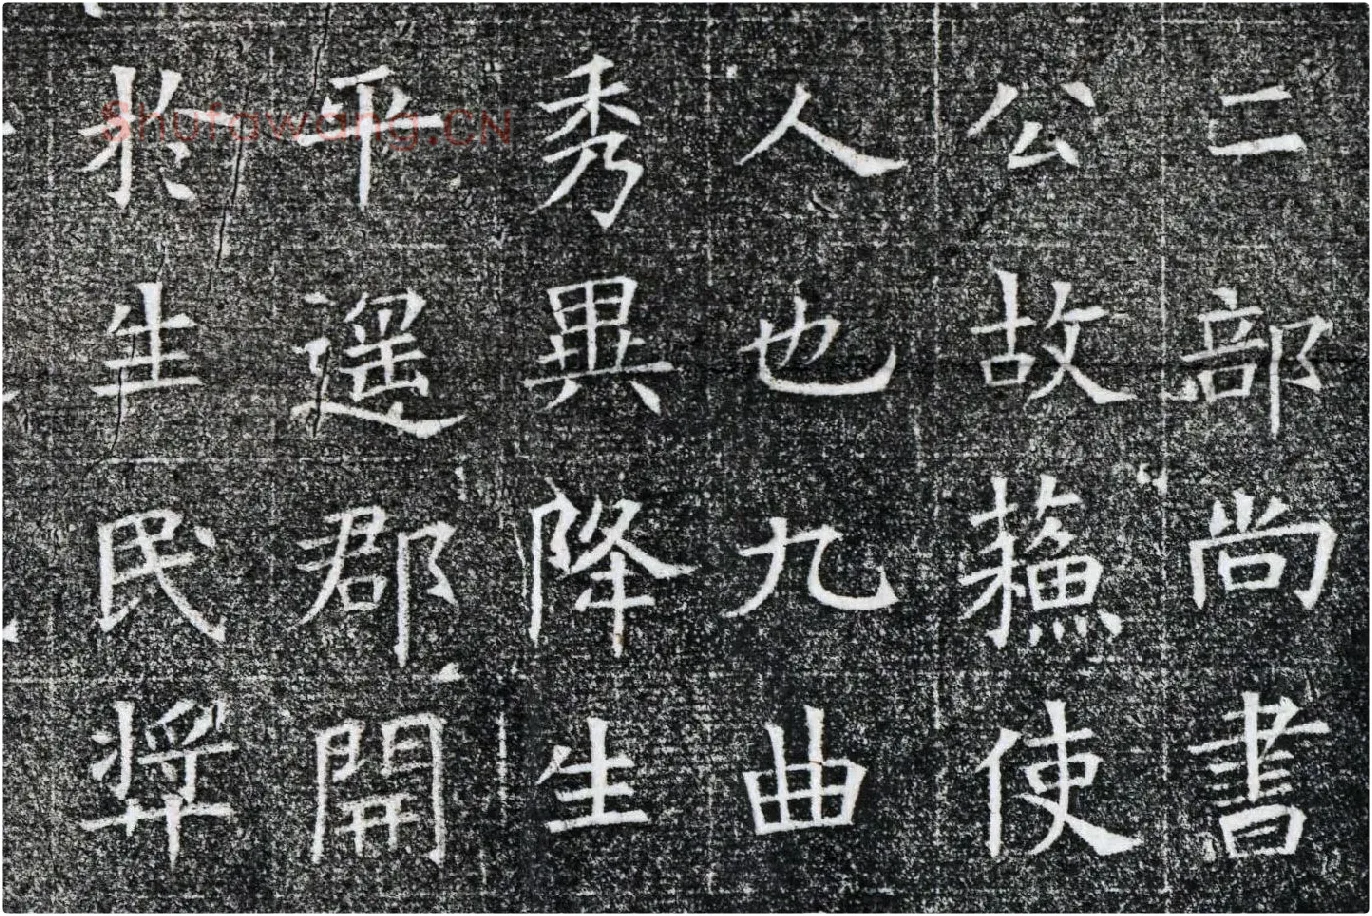 二部尚書
公故蘓使
人也九曲
秀異降生
平遥郡開
於生民
Shufawang.CN